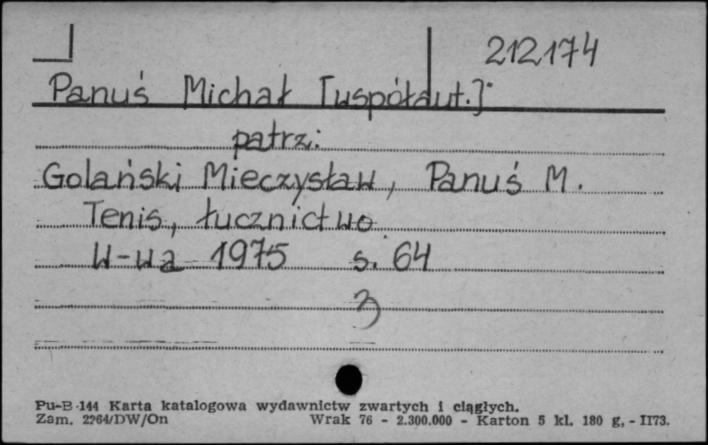 212174
Panuś Michał [współaut.]
patrz:
Golański Mieczysław, Panuś M.
Tenis, łucznictwo
W-wa 1975 s. 64
Pu-B-144 Karta katalogowa wydawnictw zwartych i ciągłych.
Zam. 2264/DW/On Wrak 76 - 2.300.000 - Karton 5 kl. 180 g, - II73.